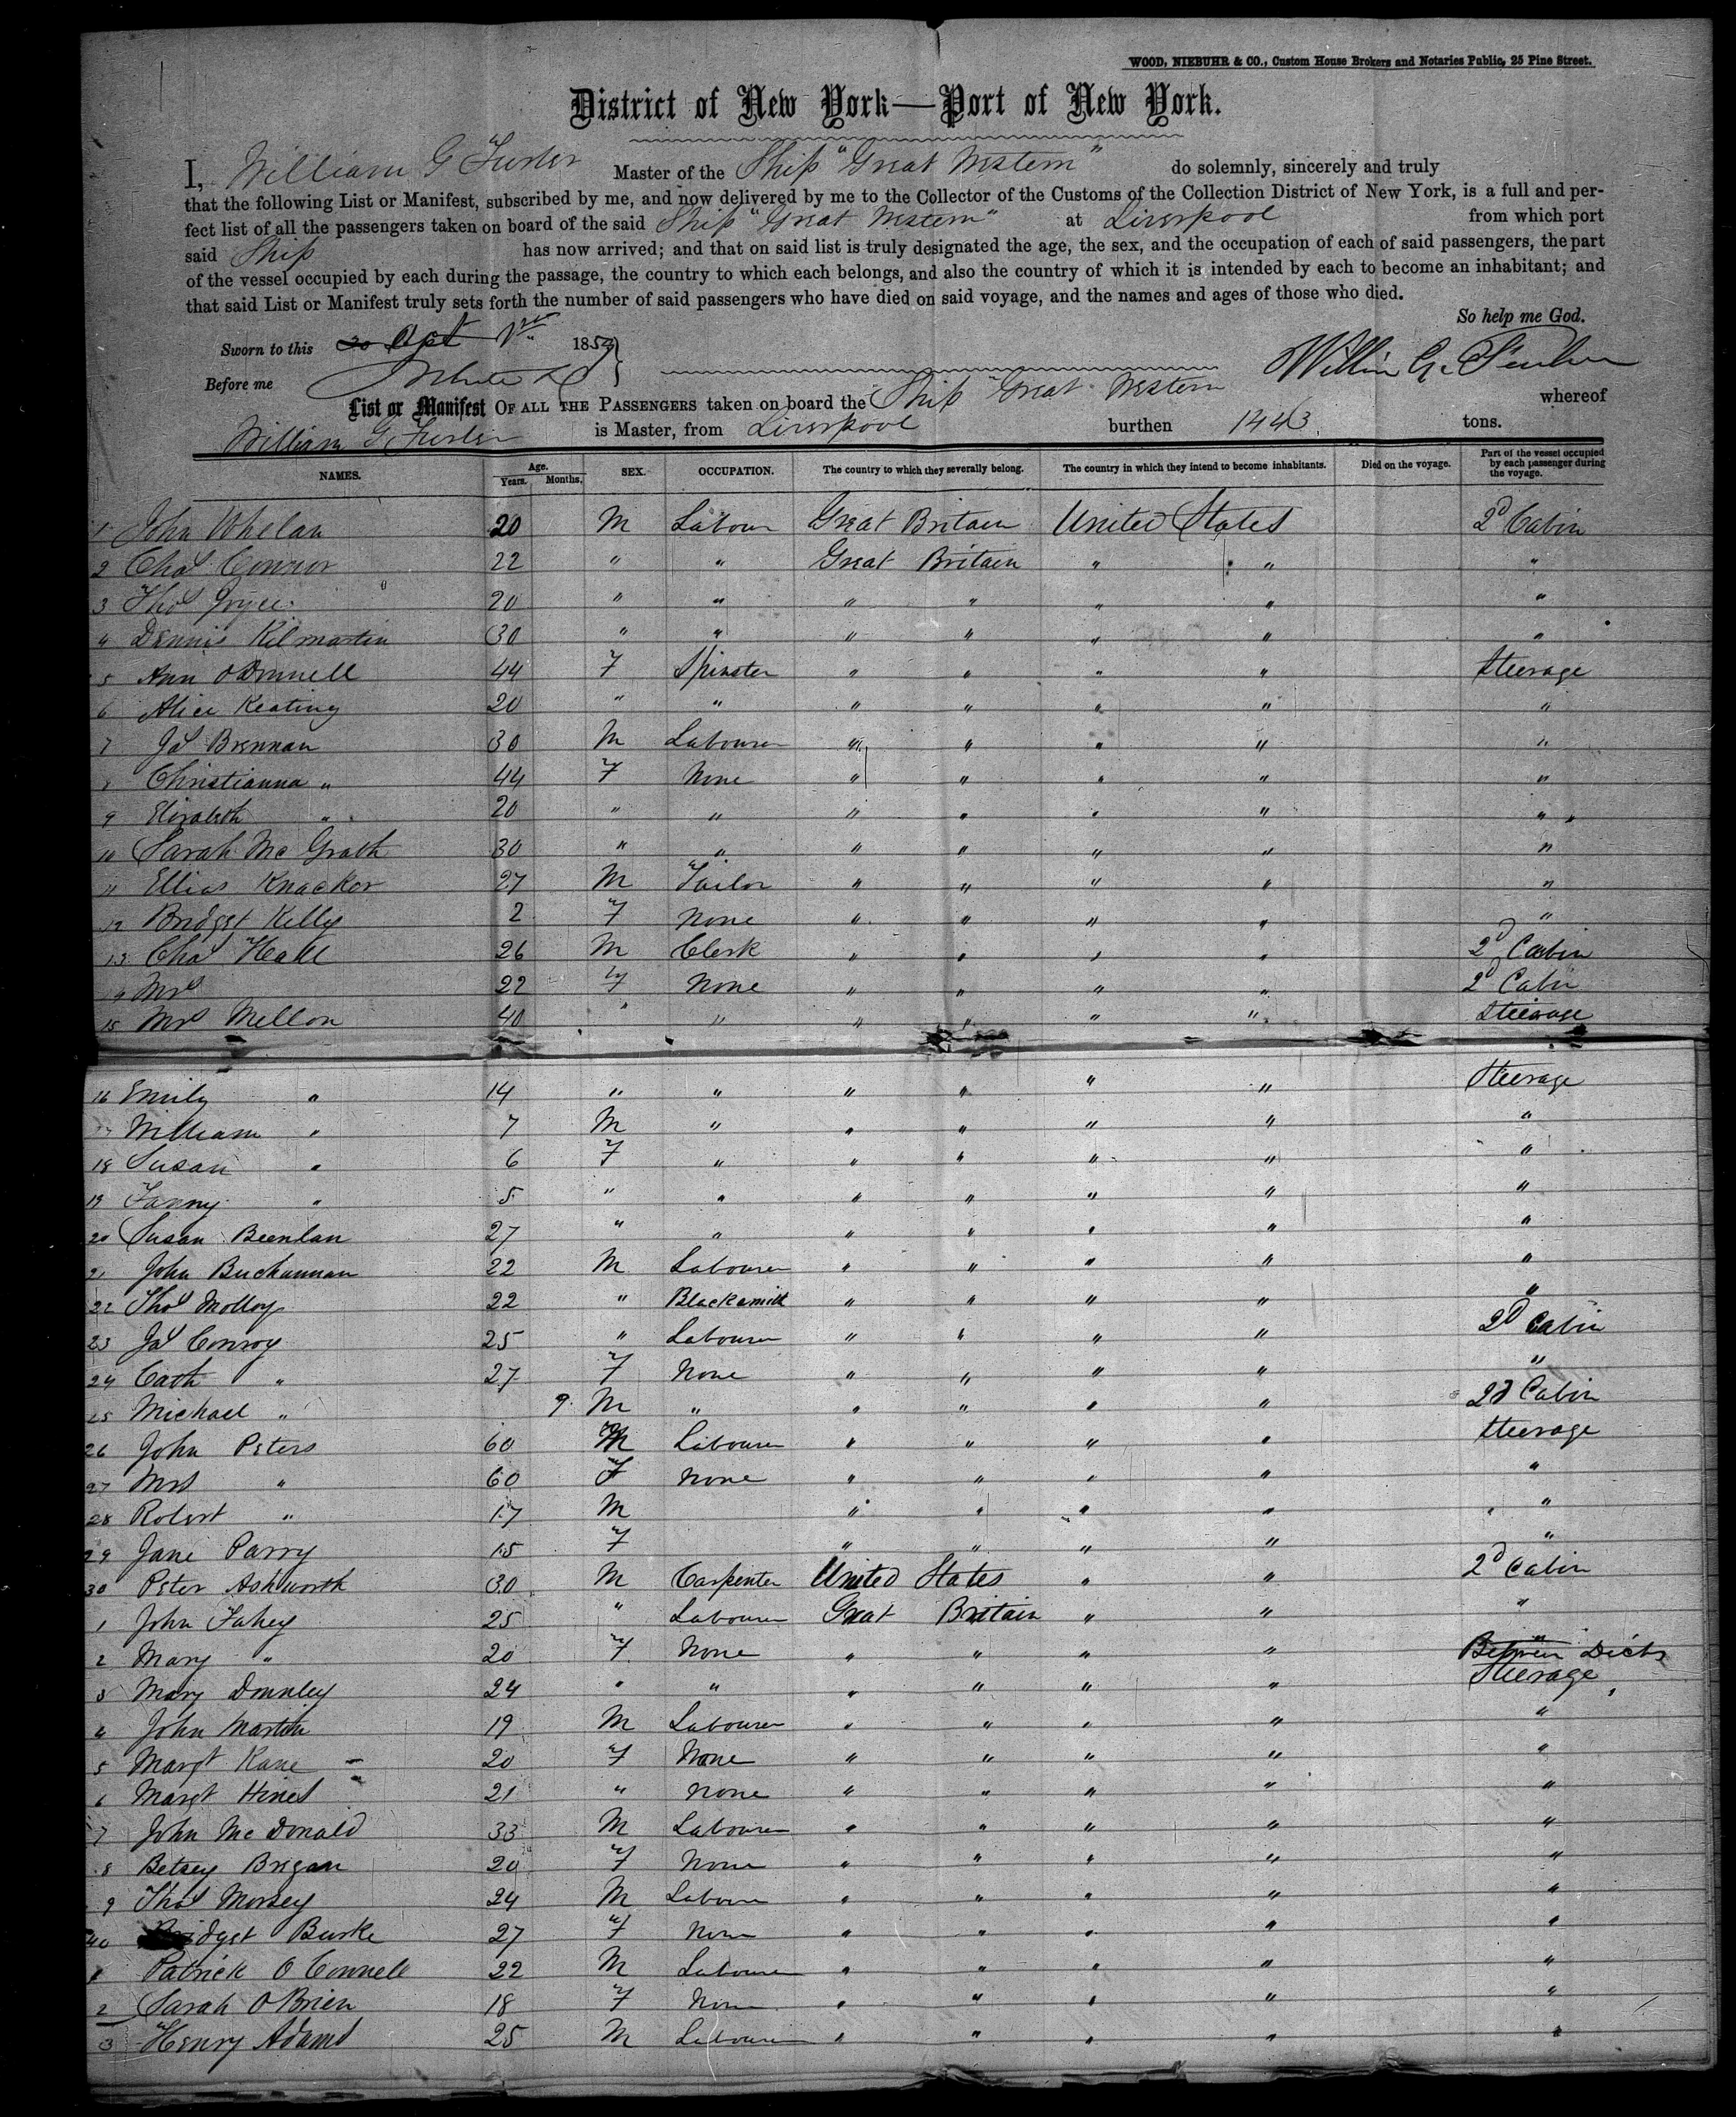 WOOD, NIEBUHR & CO., Custom House Brokers and Notaries Public, 25 Pine Street.
District of New York—Port of New York.
I, William G Furber Master of the Ship "Great Western" do solemnly, sincerely and truly
that the following List or Manifest, subscribed by me, and now delivered by me to the Collector of the Customs of the Collection District of New York, is a full and per-
fect list of all the passengers taken on board of the said Ship "Great Western" at Liverpool from which port
said Ship has now arrived; and that on said list is truly designated the age, the sex, and the occupation of each of said passengers, the part
of the vessel occupied by each during the passage, the country to which each belongs, and also the country of which it is intended by each to become an inhabitant; and
that said List or Manifest truly sets forth the number of said passengers who have died on said voyage, and the names and ages of those who died.
So help me God.
Sworn to this 185
Before me
William G. Furber
List or Manifest OF ALL THE PASSENGERS taken on board the Ship Great Western whereof
William G. Furber is Master, from Liverpool burthen 1443 tons.
NAMES. Age. Years. Months. SEX. OCCUPATION. The country to which they severally belong. The country in which they intend to become inhabitants. Died on the voyage. Part of the vessel occupied by each passenger during the voyage.
1 John Whelan 20 M Labour Great Britain United States 2d Cabin
2 Chas Connor 22 " " Great Britain " " "
3 Thos Joyce 20 " " " " " " "
4 Dennis Kilmartin 30 " " " " " " "
5 Ann O'Donnell 44 F Spinster " " " " Steerage
6 Alice Keating 20 " " " " " " "
7 Jas Brennan 30 M Labourer " " " " "
8 Christianna " 44 F None " " " " "
9 Elizabeth " 20 " " " " " " "
10 Sarah Mc Grath 30 " " " " " " "
11 Ellias Knacker 27 M Tailor " " " " "
12 Bridget Kelly 2 F None " " " " "
13 Chas Heall 26 M Clerk " " " " 2d Cabin
14 Mrs 22 F None " " " " 2d Cabin
15 Mrs Mellon 40 " " " " " " Steerage
16 Emily " 14 " " " " " " Steerage
17 William " 7 M " " " " " "
18 Susan " 6 F " " " " " "
19 Fanny " 5 " " " " " " "
20 Susan 27 " " " " " " "
21 John Buchannan 22 M Labourer " " " " "
22 Thos Molloy 22 " Blacksmith " " " " "
23 Jas Conroy 25 " Labourer " " " " 2d Cabin
24 Cath " 27 F None " " " " "
25 Michael " 9 M " " " " " 2d Cabin
26 John Peters 60 M Labourer " " " " Steerage
27 Mrs " 60 F None " " " " "
28 Robert " 17 M " " " " "
29 Jane Parry 15 F " " " " "
30 Peter Ashworth 30 M Carpenter United States " " 2d Cabin
1 John Fahey 25 " Labourer Great Britain " " "
2 Mary " 20 F None " " " " "
3 Mary Donnley 24 " " " " " " Between Decks Steerage
4 John Martin 19 M Labourer " " " " "
5 Margt Kane 20 F None " " " " "
6 Margt Hines 21 " None " " " " "
7 John Mc Donald 33 M Labourer " " " " "
8 Betsey Brigan 20 F None " " " " "
9 Thos Morsey 24 M Labour " " " " "
40 Bridget Burke 27 F None " " " " "
1 Patrick O Connell 22 M Labourer " " " " "
2 Sarah O Brien 18 F None " " " " "
3 Henry Adams 25 M Labourer " " " " "